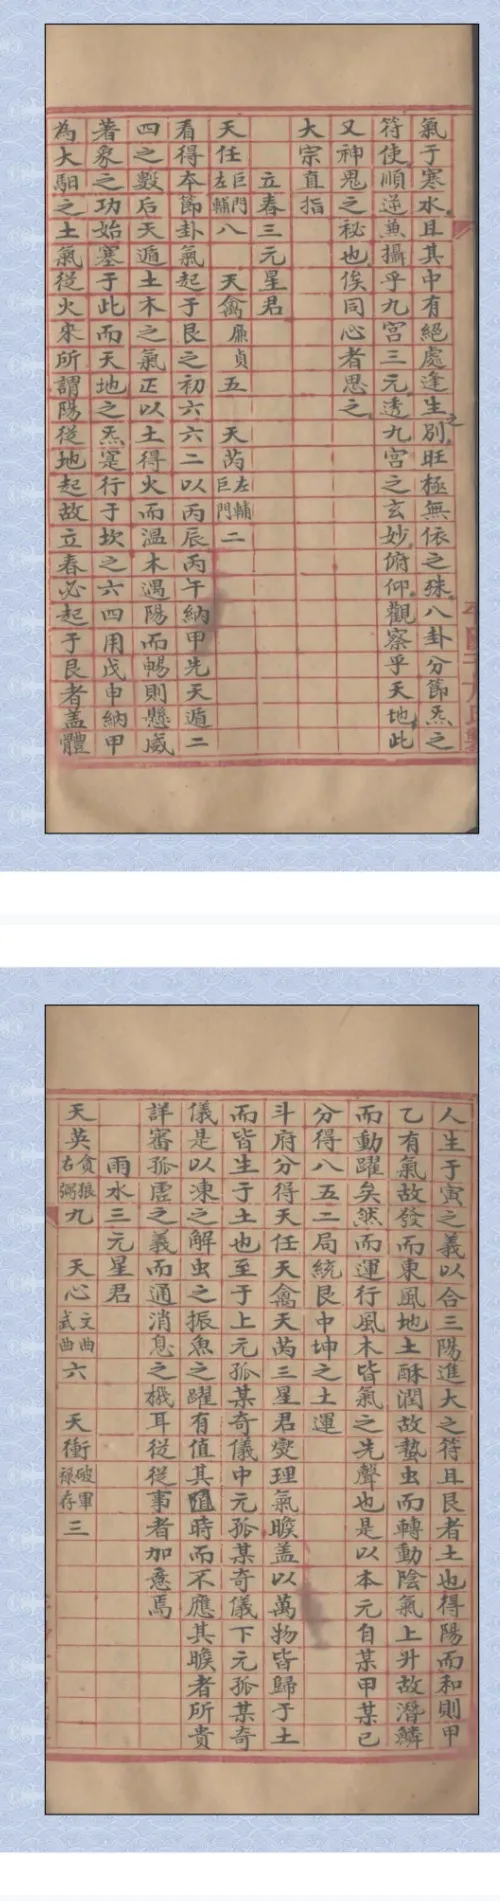 氣于寒水且其中有絕處逢生之別旺極無依之殊八卦分節炁之
符使順逆兼攝乎九宮三元透九宮之玄妙俯仰觀察乎天地此
又神鬼之秘也俟同心者思之
大宗直指
立春三元星君
天任巨門左輔八 天禽廉貞五 天芮左輔巨門二
看得本節卦氣起于艮之初六六二以丙辰丙午納甲先天遁二
四之數后天遁土木之氣正以土得火而溫木遇陽而暢則懸威
著象之功始塞于此而天地之炁寔行于坎之六四用戊申納甲
為大駟之土氣從火來所謂陽從地起故立春必起于艮者蓋體
人生于寅之義以合三陽進大之符且艮者土也得陽而和則甲
乙有氣故發而東風地土酥潤故蟄虫而轉動陰氣上升故潛鱗
而動躍矣然而運行風木皆氣之先聲也是以本元自某甲某己
分得八五二局統艮中坤之土運
斗府分得天任天禽天芮三星君燮理氣睺蓋以萬物皆歸于土
而皆生于土也至于上元孤某奇儀中元孤某奇儀下元孤某奇
儀是以凍之解虫之振魚之躍有值其隨時而不應其睺者所貴
詳審孤虛之義而通消息之機耳從從事者加意焉
雨水三元星君
天英貪狼右弼九 天心文曲武曲六 天衝破軍祿存三